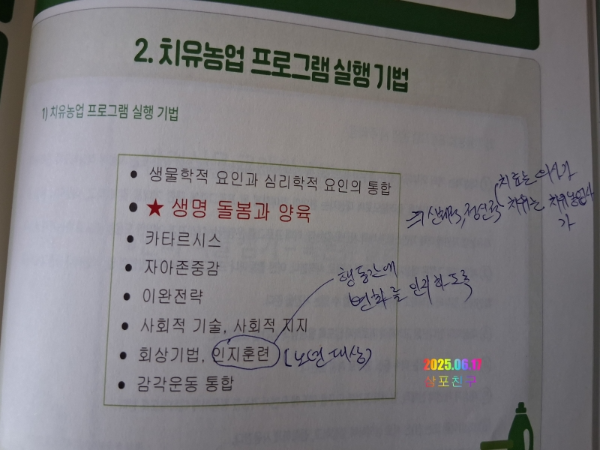 2. 치유농업 프로그램 실행 기법
1) 치유농업 프로그램 실행 기법
• 생물학적 요인과 심리학적 요인의 통합
• ★ 생명 돌봄과 양육
• 카타르시스
• 자아존중감
• 이완전략
• 사회적 기술, 사회적 지지
• 회상기법, 인지훈련 (노년 대상)
• 감각운동 통합
치료는 의사가
치유는 치유농업사
가
행동간에
변화를 인지하도록
2025.06.17